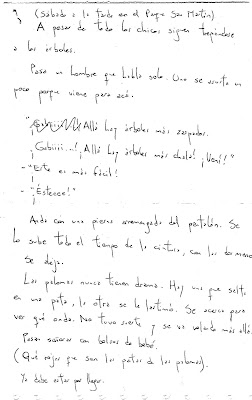 (Sábado a la tarde en el Parque San Martín)
A pesar de todo los chicos siguen trepándose
a los árboles.
Pasa un hombre que habla solo. Uno se asusta un
poco porque viene para acá.
"¡Gabiiii! Allá hay árboles más zarpados.
¡Gabiiii...! ¡Allá hay árboles más chalo! ¡Vení!"
- "Este es más fácil!
- "Ésteeee!"
Anda con una pierna arremangada del pantalón. Se
lo sube todo el tiempo de la cintura, con las
Se deja.
Las palomas nunca tienen drama. Hay una que salta
en una pata, la otra se la lastimó. Se acerca para
ver qué onda. No tuvo suerte y se va volando más allá.
Pasan señoras con bolsas de bebé.
(Qué rojas que son las patas de las palomas).
Ya debe estar por llegar.